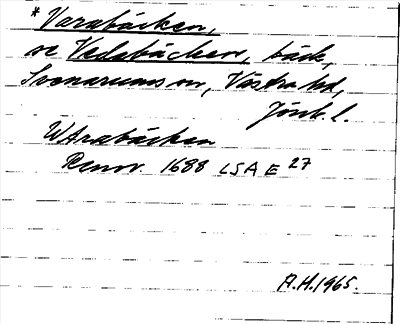 *Varabäcken,
se Vedabäcken, bäck,
Svenarums sn, Västra hd,
Jönk. l.
WArabäcken
Renov. 1688 LSA E 27
A.H. 1965.